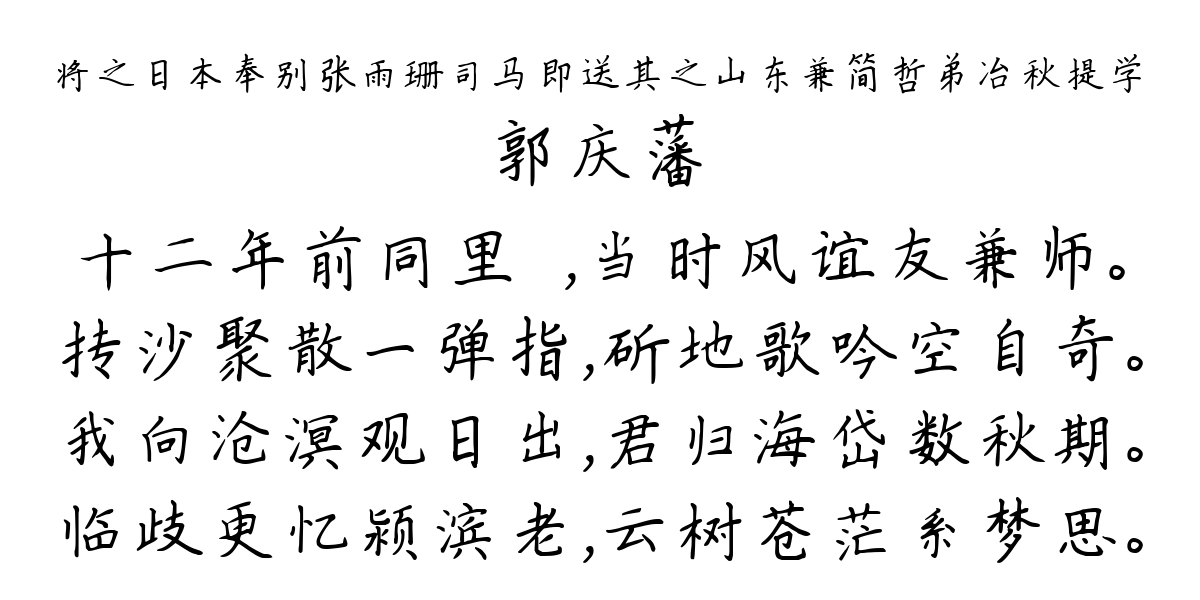 将之日本奉别张雨珊司马即送其之山东兼简哲弟冶秋提学
郭庆藩
十二年前同里,当时风谊友兼师。
抟沙聚散一弹指,斫地歌吟空自奇。
我向沧溟观日出,君归海岱数秋期。
临歧更忆颍滨老,云树苍茫系梦思。